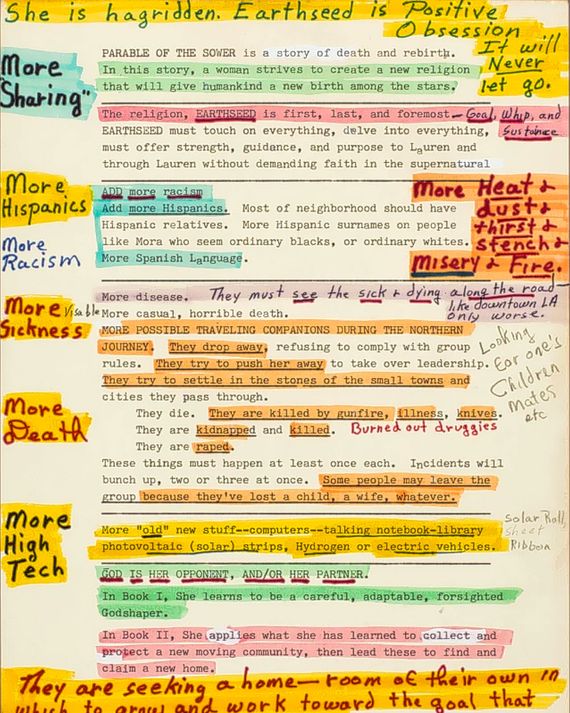 She is hagridden. Earthseed is Positive
Obsession
It will
Never
let go.
More
"Sharing"
PARABLE OF THE SOWER is a story of death and rebirth.
In this story, a woman strives to create a new religion
that will give humankind a new birth among the stars.
The religion, EARTHSEED is first, last, and foremost—Goal, Whip, and
Sustainence
EARTHSEED must touch on everything, delve into everything,
must offer strength, guidance, and purpose to Lauren and
through Lauren without demanding faith in the supernatural
More
Hispanics
More
Racism
ADD more racism
Add more Hispanics. Most of neighborhood should have
Hispanic relatives. More Hispanic surnames on people
like Mora who seem ordinary blacks, or ordinary whites.
More Spanish Language.
More Heat &
dust &
thirst &
stench &
Misery & Fire.
More Visable
Sickness
More disease. They must see the sick & dying along the road—
like downtown LA
only worse.
More casual, horrible death.
MORE POSSIBLE TRAVELING COMPANIONS DURING THE NORTHERN
JOURNEY. They drop away, refusing to comply with group
rules. They try to push her away to take over leadership.
They try to settle in the stones of the small towns and
cities they pass through.
Looking
for one's
Children
mates
etc
More
Death
They die. They are killed by gunfire, illness, knives.
They are kidnapped and killed. Burned out druggies
They are raped.
These things must happen at least once each. Incidents will
bunch up, two or three at once. Some people may leave the
group because they've lost a child, a wife, whatever.
More
High
Tech
More "old" new stuff--computers--talking notebook-library
photovoltaic (solar) strips, Hydrogen or electric vehicles.
solar Roll,
sheet
Ribbon
GOD IS HER OPPONENT, AND/OR HER PARTNER.
In Book I, She learns to be a careful, adaptable, forsighted
Godshaper.
In Book II, She applies what she has learned to collect and
protect a new moving community, then lead these to find and
claim a new home.
They are seeking a home—room of their own in
which to grow and work toward the goal that